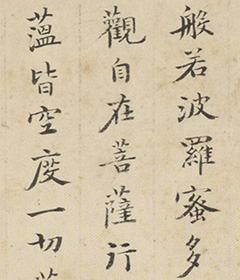 般若波羅蜜多
觀自在菩薩行
蘊皆空度一切